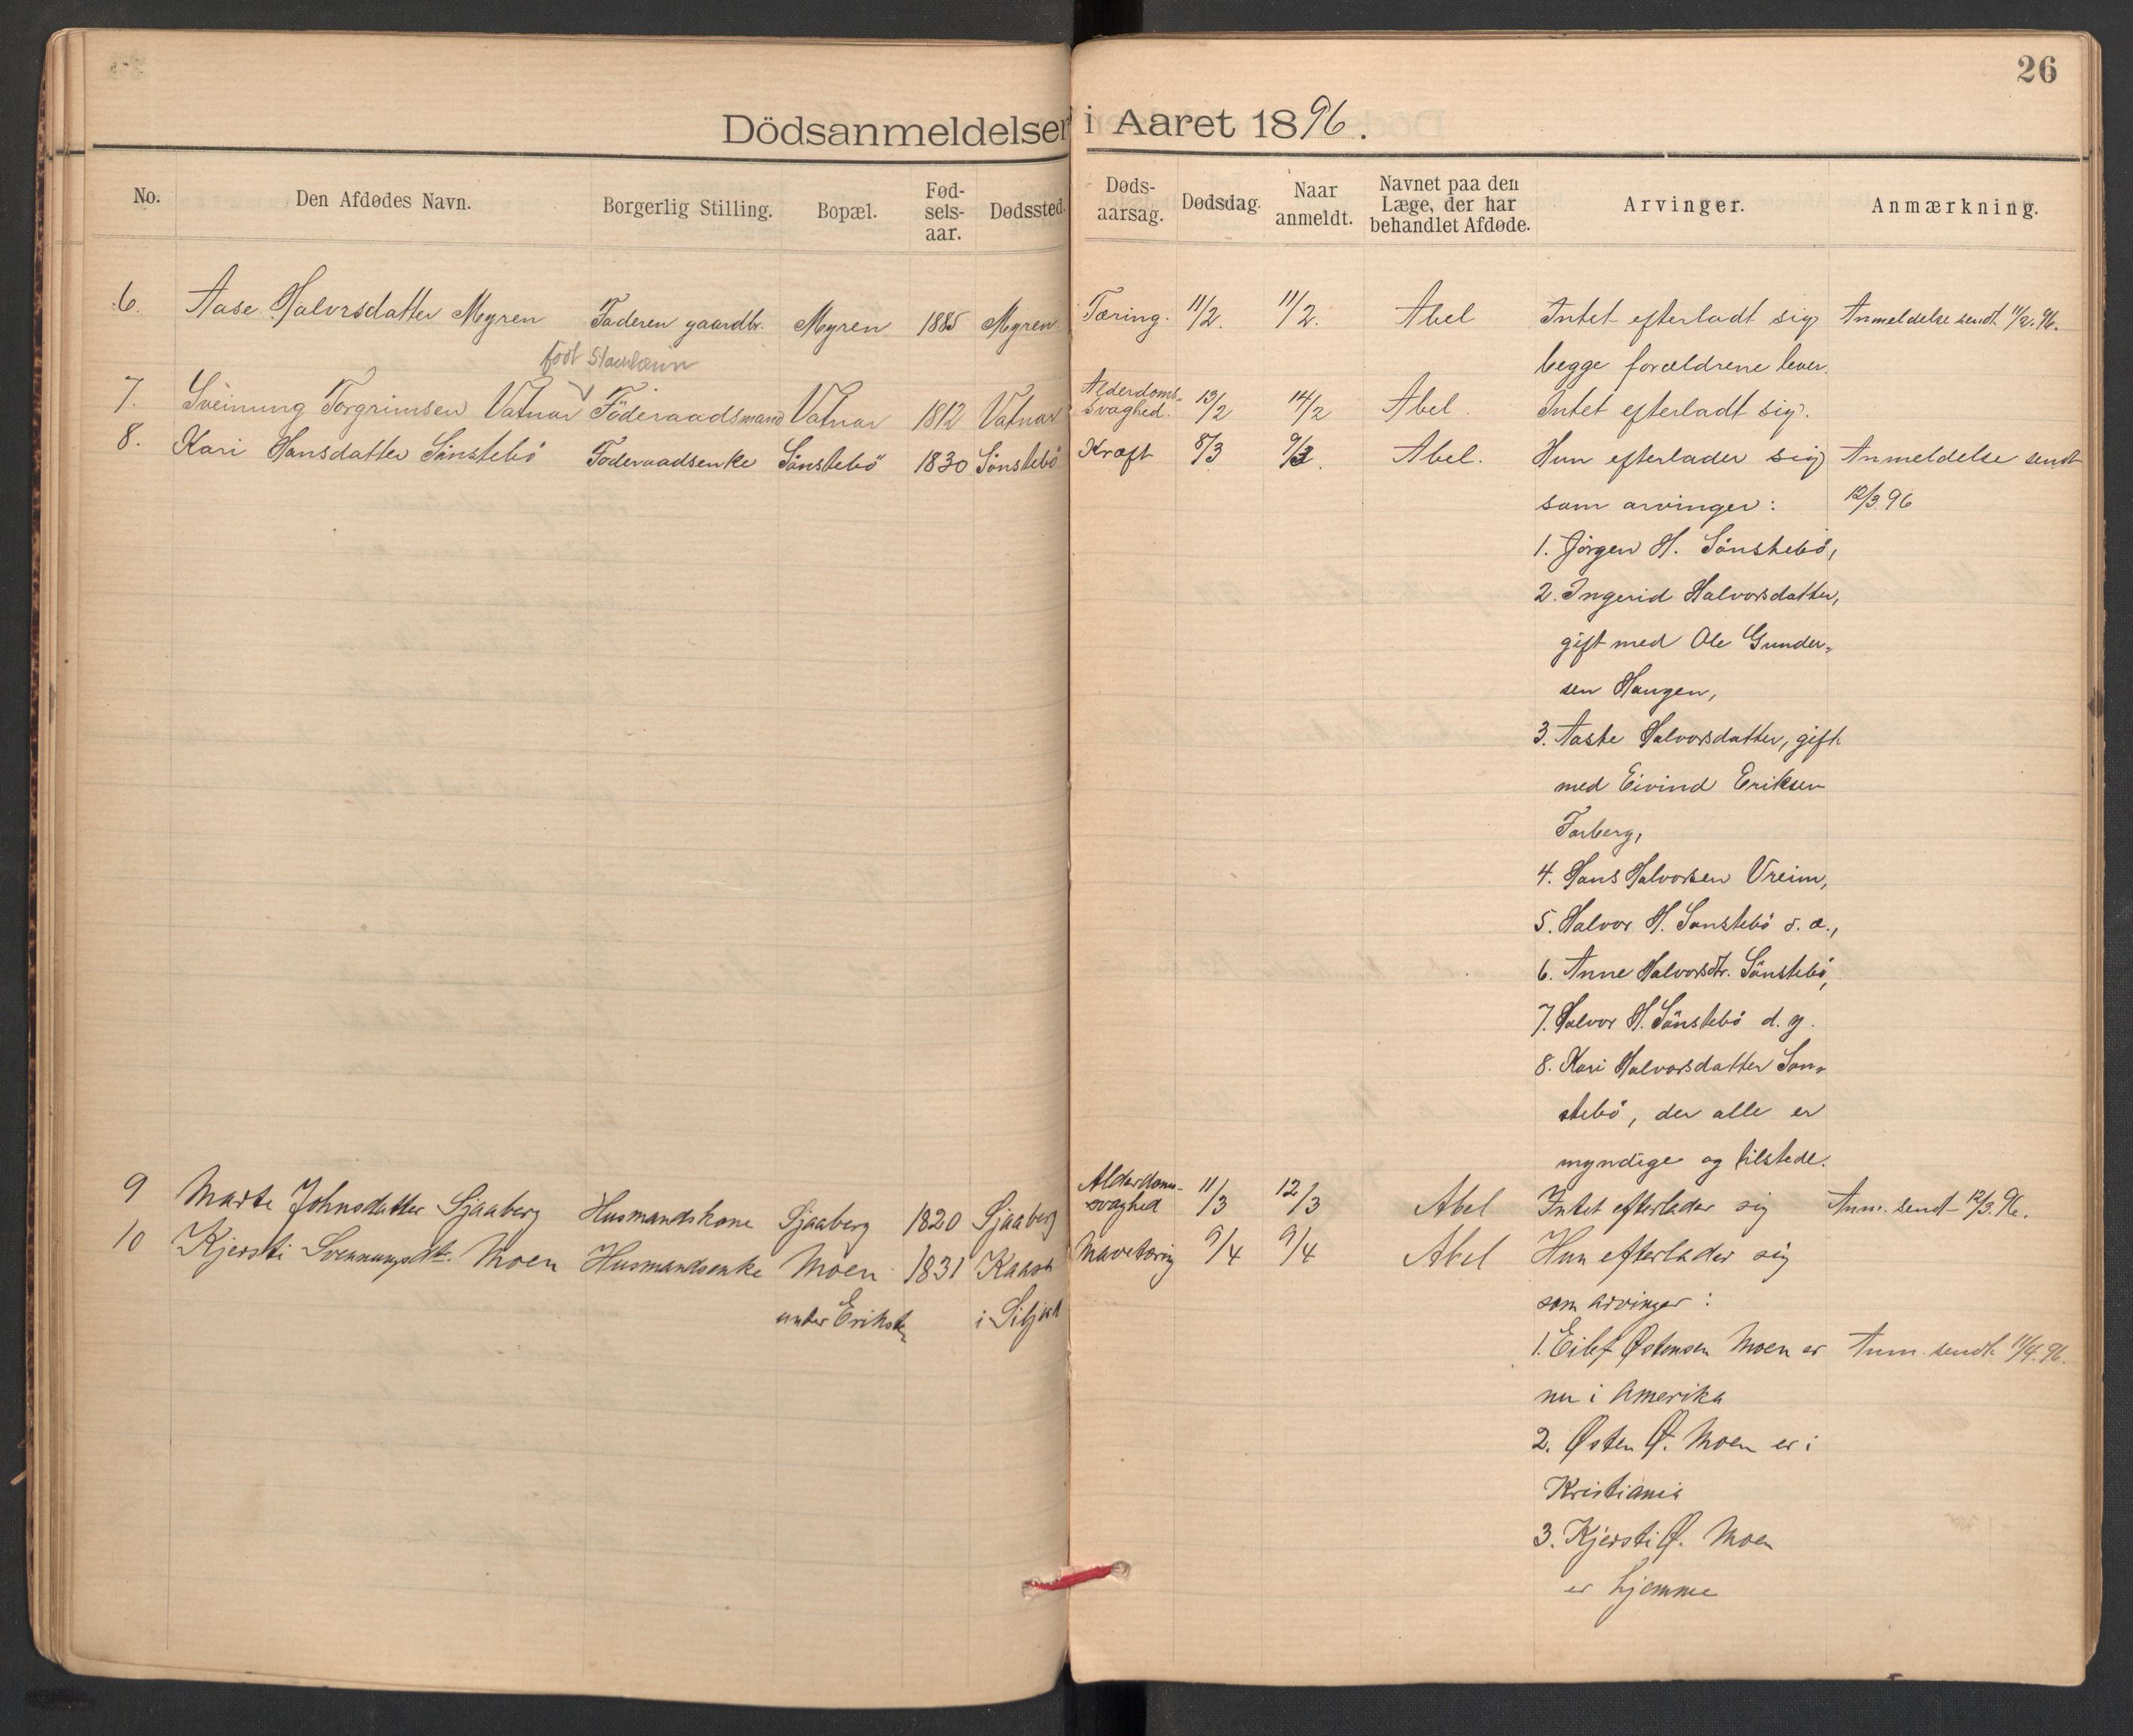 26
Dödsanmeldelser i Aaret 1896.
No. Den Afdødes Navn. Borgerlig Stilling. Bopæl. Fød-sels-aar. Dødssted. Døds-aarsag. Dødsdag. Naar anmeldt. Navnet paa den Læge, der har behandlet Afdøde. Arvinger. Anmærkning.
6. Aase Halvorsdatter Myren Faderen gaardbr. Myren 1885 Myren Tæring. 11/2. 11/2. Abel Intet efterladt sig Anmeldelse sendt 11/2. 96.
begge forældrene lever.
født
7. Sveinung Torgrimsen Vatnar Föderaadsmand Vatnar 1812 Vatnar Alderdoms-svaghed. 13/2 14/2 Abel. Intet efterladt sig.
8. Kari Hansdatter Sönstebö Foderaadsenke Sönstebö 1830 Sönstebö Kræft 8/3 9/3. Abel. Hun efterlader sig Anmeldelse sendt
som arvinger: 12/3 96
1. Jörgen H. Sönstebö,
2. Ingerid Halvorsdatter,
gift med Ole Gunder-
sen Haugen,
3. Aaste Halvorsdatter, gift
med Eivind Eriksen
Farberg,
4. Hans Halvorsen Vreim,
5. Halvor H. Sonstebö d. æ.,
6. Anne Halvorsdtr. Sönstebö,
7. Halvor H. Sönstebö d. y.
8. Kari Halvorsdatter Son-
stebö, der alle er
myndige og tilstede.
9 Marte Johnsdatter Sjaaberg Husmandskone Sjaaberg 1820 Sjaaberg Alderdoms-svaghed 11/3 12/3 Abel Intet efterlader sig Anm. sendt 12/3. 96.
10 Kjersti Svennungsdtr. Moen Husmandsenke Moen 1831 Kaasa Mavetæring 9/4 9/4 Abel Hun efterlader sig
under i Siljord som arvinger:
1. Eilef Østensen Moen er Anm. sendt 11/4. 96.
nu i Amerika
2. Østen Ø. Moen er i
Kristiania
3. Kjersti Ø. Moen
er hjemme